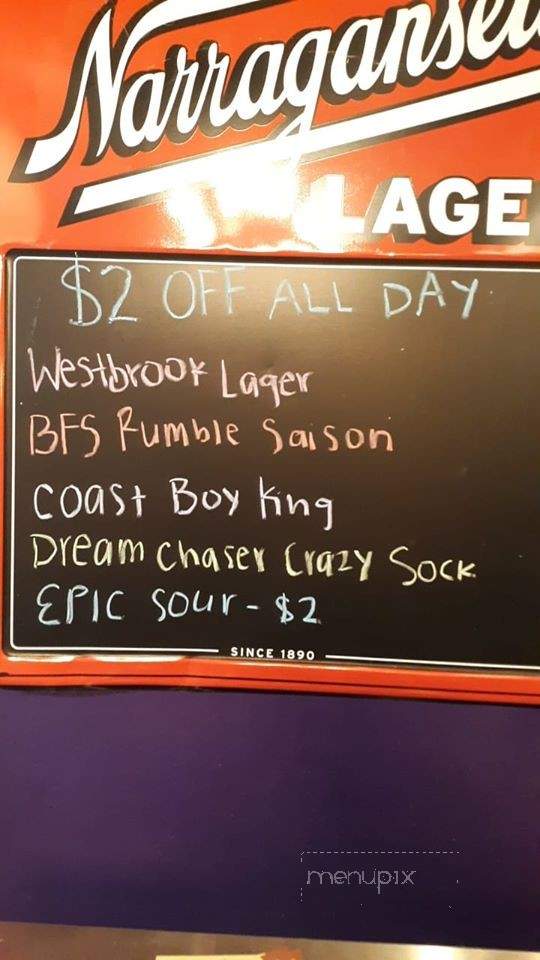 Narraganset
LAGE
$2 OFF ALL DAY
Westbrook Lager
BFS Rumble Saison
Coast Boy King
Dream Chaser Crazy Sock
EPIC Sour - $2
SINCE 1890
menupix